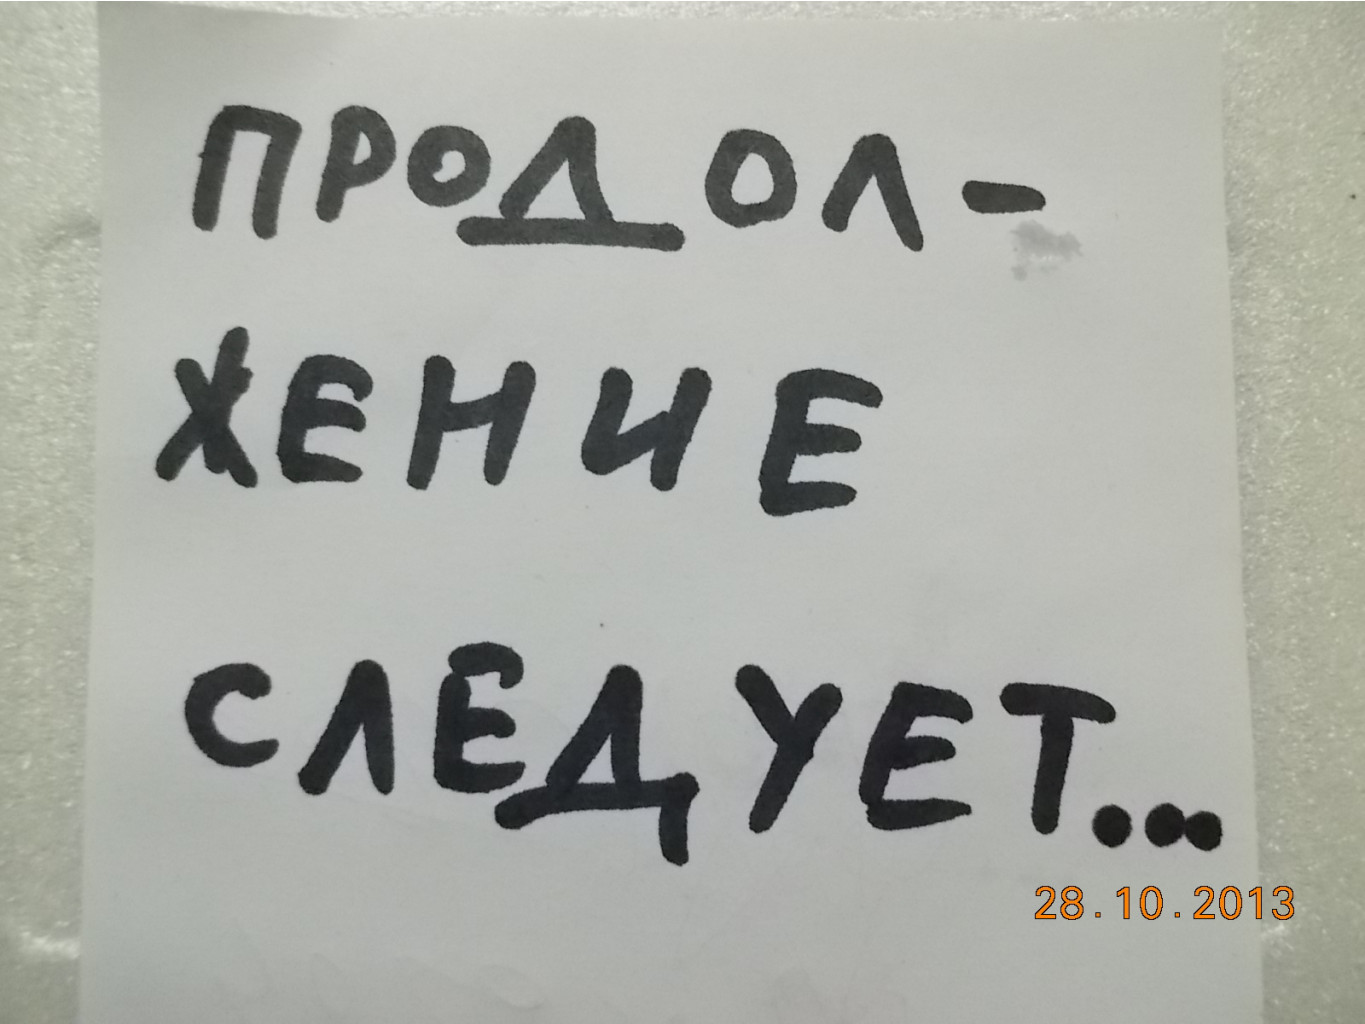 ПРОДОЛ-
ЖЕНИЕ
СЛЕДУЕТ...
28.10.2013